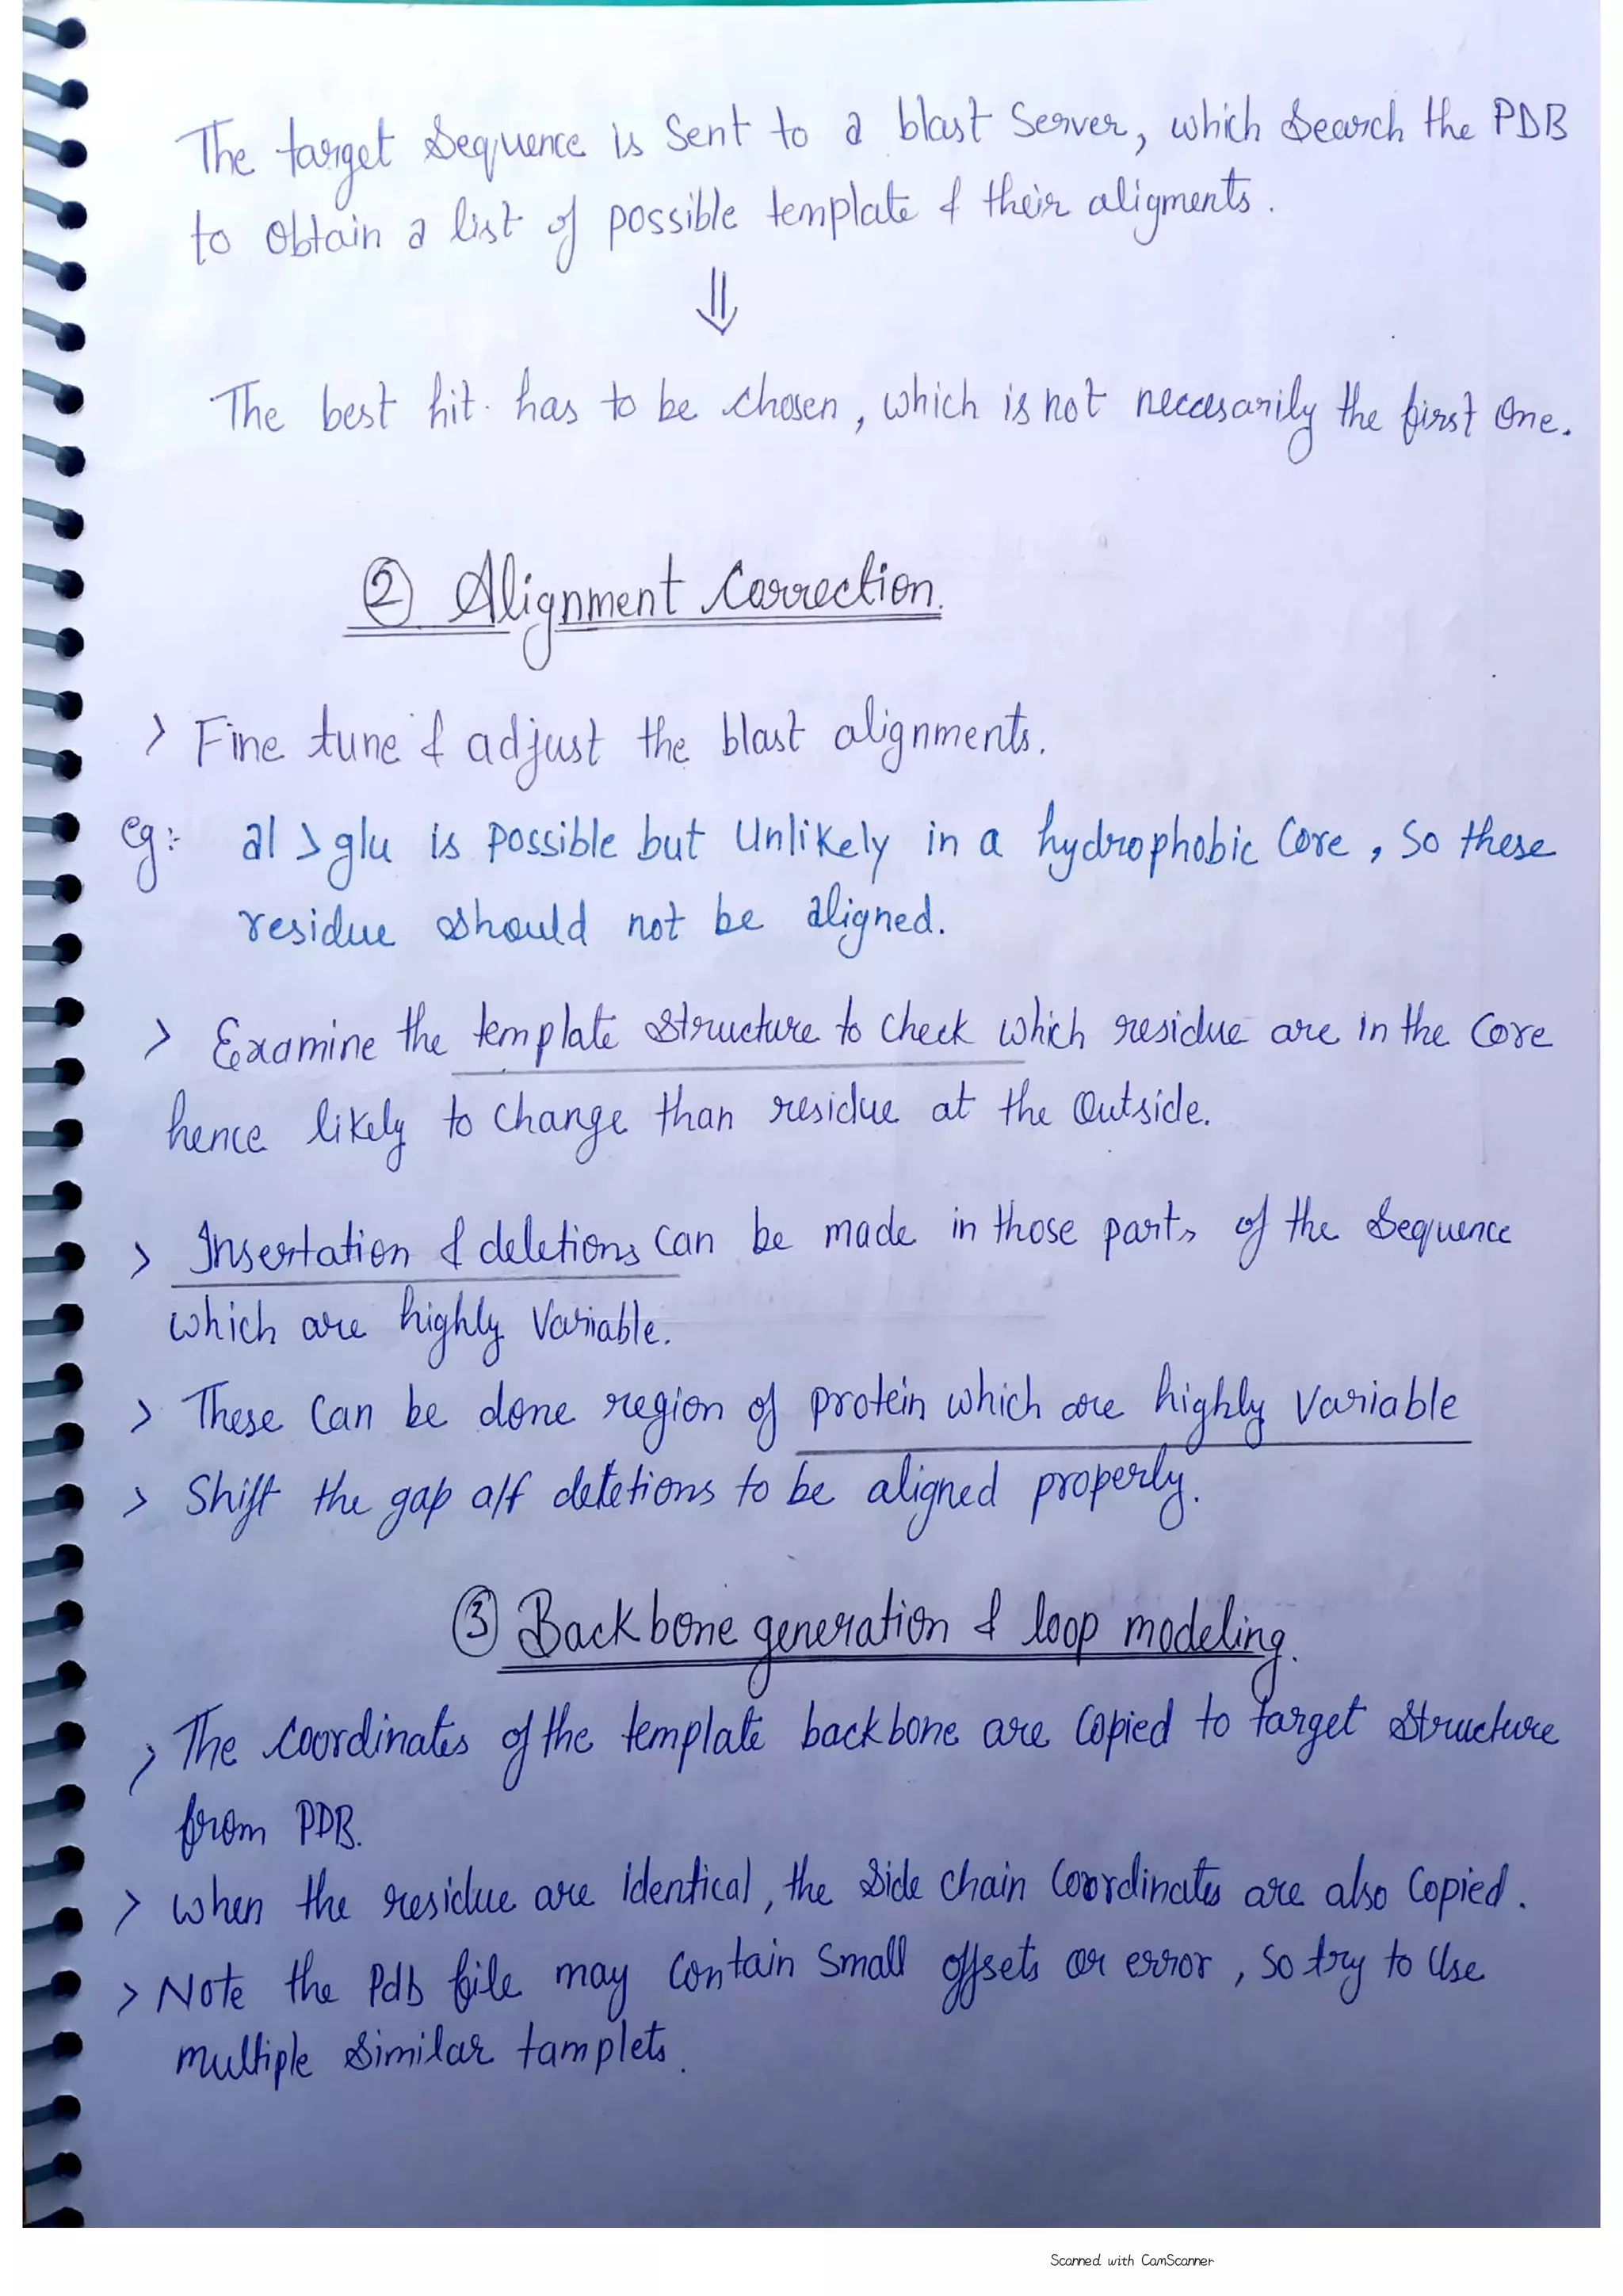 The target sequence is sent to a blast server, which search the PDB
to obtain a list of possible template & their aligments.
⇓
The best hit has to be chosen, which is not neccesarily the first one.
② Alignment Correction.
> Fine tune & adjust the blast alignments.
eg:- al > glu is possible but unlikely in a hydrophobic core, so these
residue should not be aligned.
> Examine the template structure to check which residue are in the core
hence likely to change than residue at the outside.
> Insertation & deletions can be made in those parts of the sequence
which are highly variable.
> These can be done region of protein which are highly variable
> Shift the gap a/f deletions to be aligned properly.
③ Backbone generation & loop modeling.
> The coordinates of the template backbone are copied to target structure
from PDB.
> when the residue are identical, the side chain coordinates are also copied.
> Note the Pdb file may contain small offsets or error, so try to use
multiple similar tamplets.
Scanned with CamScanner